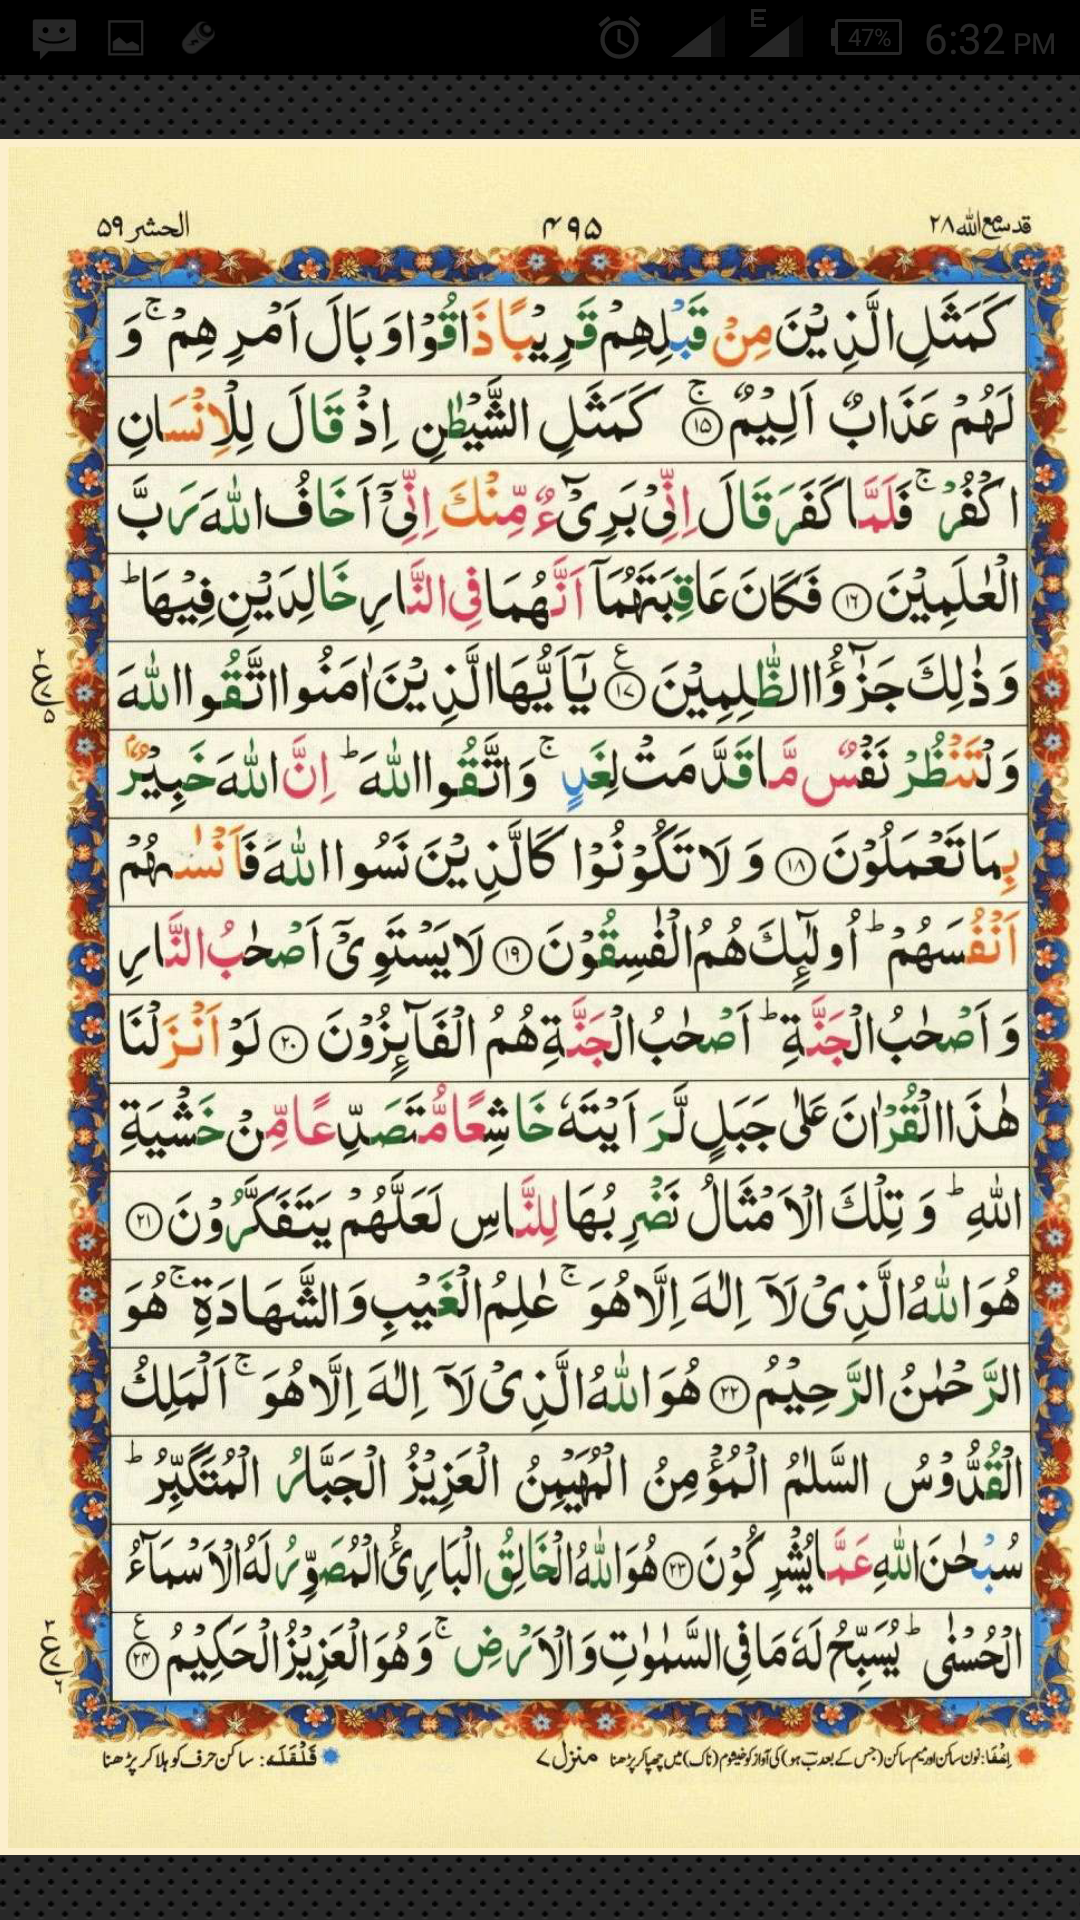 6:32 PM
47%
E
قد سمع الله ٢٨
۴۹۵
الحشر ۵۹
كَمَثَلِ الَّذِيْنَ مِنْ قَبْلِهِمْ قَرِيْبًا ذَاقُوْا وَبَالَ اَمْرِهِمْ ۚ وَ
لَهُمْ عَذَابٌ اَلِيْمٌ ۚ ﴿١٥﴾ كَمَثَلِ الشَّيْطٰنِ اِذْ قَالَ لِلْاِنْسَانِ
اكْفُرْ ۚ فَلَمَّا كَفَرَ قَالَ اِنِّيْ بَرِيْٓءٌ مِّنْكَ اِنِّيْٓ اَخَافُ اللّٰهَ رَبَّ
الْعٰلَمِيْنَ ﴿١٦﴾ فَكَانَ عَاقِبَتَهُمَآ اَنَّهُمَا فِي النَّارِ خَالِدَيْنِ فِيْهَا ؕ
وَذٰلِكَ جَزٰٓؤُا الظّٰلِمِيْنَ ﴿١٧﴾ ع يٰٓاَيُّهَا الَّذِيْنَ اٰمَنُوا اتَّقُوا اللّٰهَ
وَلْتَنْظُرْ نَفْسٌ مَّا قَدَّمَتْ لِغَدٍ ۚ وَاتَّقُوا اللّٰهَ ؕ اِنَّ اللّٰهَ خَبِيْرٌۢ
بِمَا تَعْمَلُوْنَ ﴿١٨﴾ وَلَا تَكُوْنُوْا كَالَّذِيْنَ نَسُوا اللّٰهَ فَاَنْسٰىهُمْ
اَنْفُسَهُمْ ؕ اُولٰٓئِكَ هُمُ الْفٰسِقُوْنَ ﴿١٩﴾ لَا يَسْتَوِيْٓ اَصْحٰبُ النَّارِ
وَاَصْحٰبُ الْجَنَّةِ ؕ اَصْحٰبُ الْجَنَّةِ هُمُ الْفَآئِزُوْنَ ﴿٢٠﴾ لَوْ اَنْزَلْنَا
هٰذَا الْقُرْاٰنَ عَلٰى جَبَلٍ لَّرَاَيْتَهٗ خَاشِعًا مُّتَصَدِّعًا مِّنْ خَشْيَةِ
اللّٰهِ ؕ وَتِلْكَ الْاَمْثَالُ نَضْرِبُهَا لِلنَّاسِ لَعَلَّهُمْ يَتَفَكَّرُوْنَ ﴿٢١﴾
هُوَ اللّٰهُ الَّذِيْ لَآ اِلٰهَ اِلَّا هُوَ ۚ عٰلِمُ الْغَيْبِ وَالشَّهَادَةِ ۚ هُوَ
الرَّحْمٰنُ الرَّحِيْمُ ﴿٢٢﴾ هُوَ اللّٰهُ الَّذِيْ لَآ اِلٰهَ اِلَّا هُوَ ۚ اَلْمَلِكُ
الْقُدُّوْسُ السَّلٰمُ الْمُؤْمِنُ الْمُهَيْمِنُ الْعَزِيْزُ الْجَبَّارُ الْمُتَكَبِّرُ ؕ
سُبْحٰنَ اللّٰهِ عَمَّا يُشْرِكُوْنَ ﴿٢٣﴾ هُوَ اللّٰهُ الْخَالِقُ الْبَارِئُ الْمُصَوِّرُ لَهُ الْاَسْمَآءُ
الْحُسْنٰى ؕ يُسَبِّحُ لَهٗ مَا فِي السَّمٰوٰتِ وَالْاَرْضِ ۚ وَهُوَ الْعَزِيْزُ الْحَكِيْمُ ﴿٢٤﴾ ع
٢ ع ٧ ۵
٣ ع ٧ ٦
اِخْفَا: نون ساکن اور میم ساکن (جس کے بعد ب ہو) کی آواز کو خیشوم (ناک) میں چھپا کر پڑھنا
منزل ۷
قَلْقَلَه: ساکن حرف کو ہلا کر پڑھنا